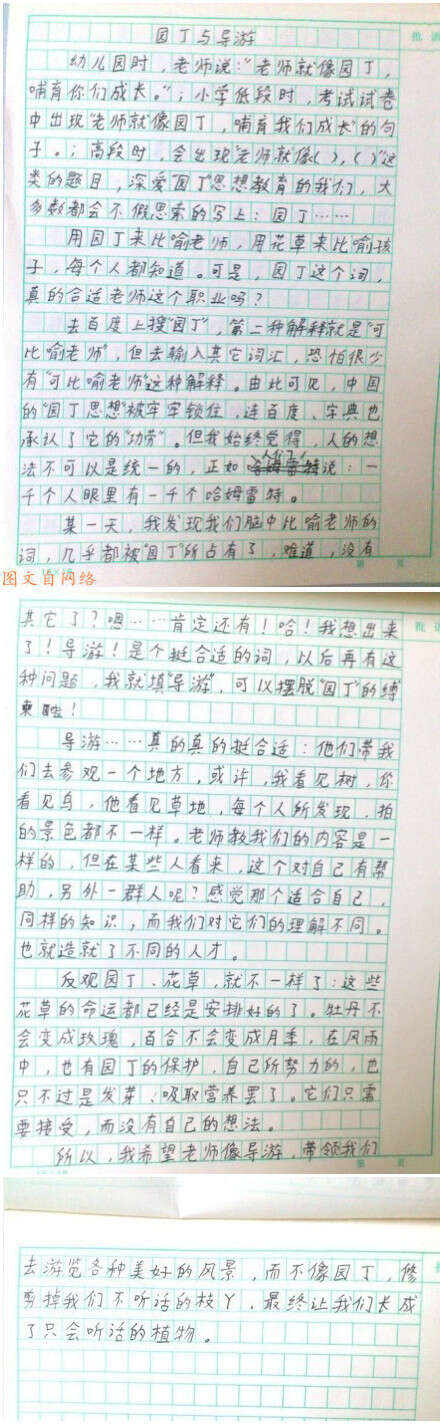 园丁与导游
幼儿园时，老师说：“老师就像园丁，
哺育你们成长。”；小学低段时，考试试卷
中出现“老师就像园丁，哺育我们成长”的句
子。；高段时，会出现“老师就像（），（）”这
类的题目，深爱“园丁”思想教育的我们，大
多数都会不假思索的写上：园丁……
用园丁来比喻老师，用花草来比喻孩
子，每个人都知道。可是，园丁这个词，
真的合适老师这个职业吗？
去百度上搜“园丁”，第二种解释就是“可
比喻老师”，但去输入其它词汇，恐怕很少
有“可比喻老师”这种解释。由此可见，中国
的“园丁思想”被牢牢锁住，连百度、字典也
承认了它的“功劳”。但我始终觉得，人的想
法不可以是统一的，正如人们说：一
千个人眼里有一千个哈姆雷特。
某一天，我发现我们脑中比喻老师的
词，几乎都被“园丁”所占有了，难道，没有
图文自网络
其它了？嗯……肯定还有！哈！我想出来
了！导游！是个挺合适的词，以后再有这
种问题，我就填“导游”，可以摆脱“园丁”的缚
束啦！
导游……真的真的挺合适：他们带我
们去参观一个地方，或许，我看见树，你
看见鸟，他看见草地，每个人所发现、拍
的景色都不一样。老师教我们的内容是一
样的，但在某些人看来，这个对自己有帮
助，另外一群人呢？感觉那个适合自己，
同样的知识，而我们对它们的理解不同。
也就造就了不同的人才。
反观园丁、花草，就不一样了：这些
花草的命运都已经是安排好的了。牡丹不
会变成玫瑰，百合不会变成月季，在风雨
中，也有园丁的保护，自己所努力的，也
只不过是发芽、吸取营养罢了。它们只需
要接受，而没有自己的想法。
所以，我希望老师像导游，带领我们
去游览各种美好的风景，而不像园丁，修
剪掉我们不听话的枝丫，最终让我们长成
了只会听话的植物。